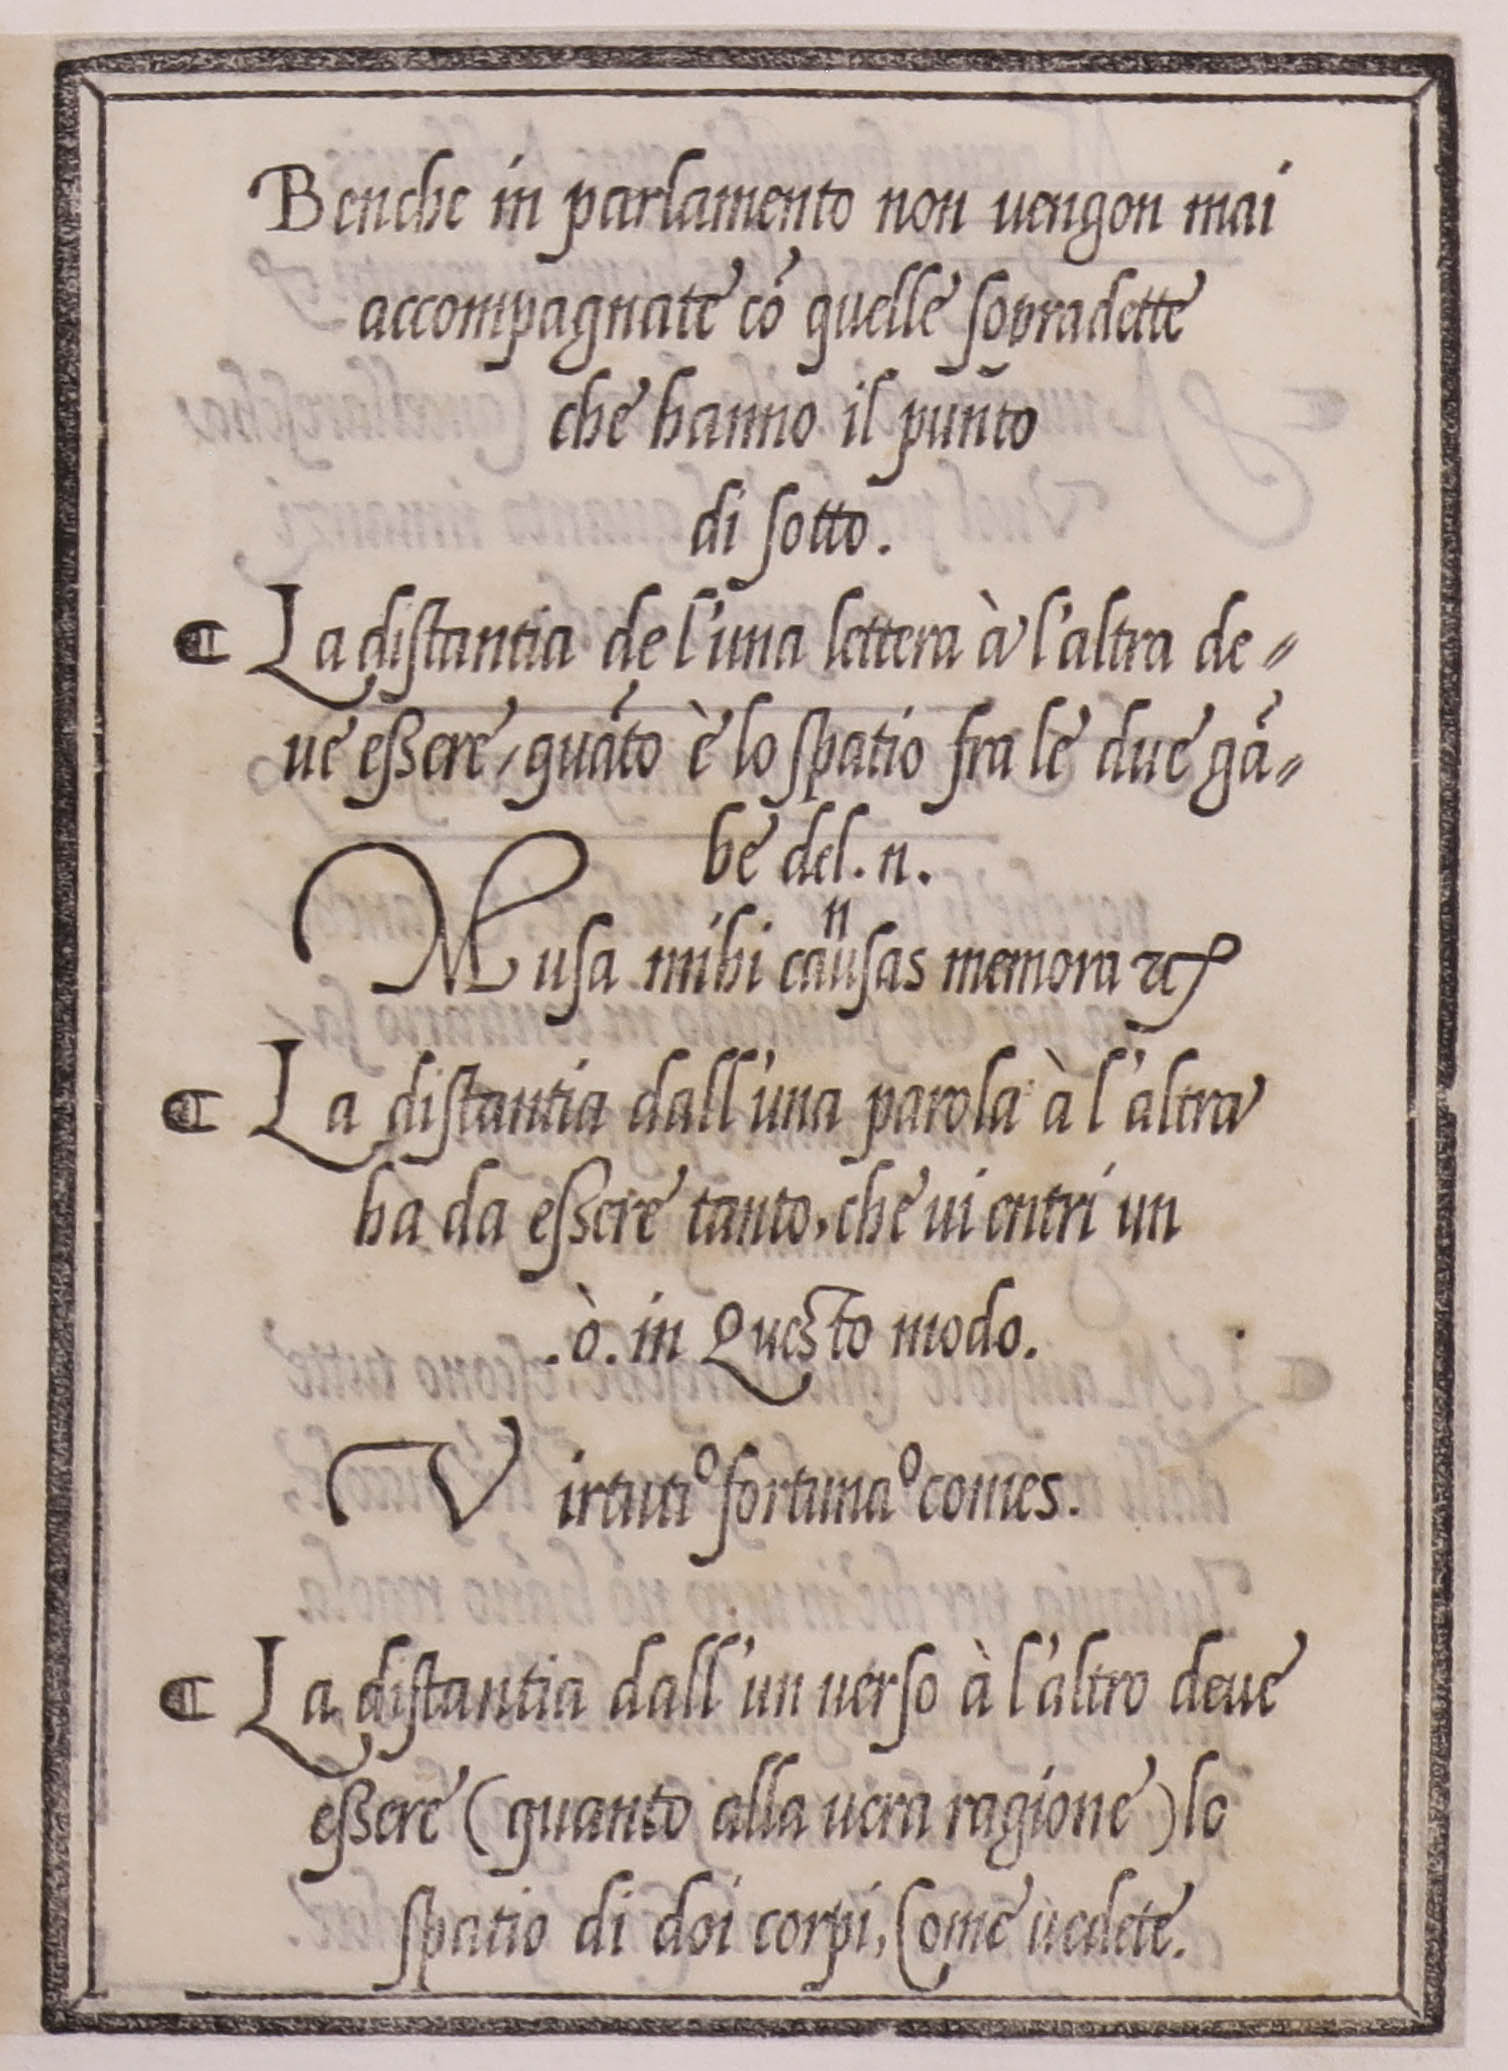 Benche in parlamento non uengon mai
accompagnate cõ quelle sopradette
che hanno il punto
di sotto.
¶ La distantia de l'una lettera à l'altra de⸗
ue eßere, quãto è lo spatio fra le due gã⸗
be del .n.
n
Musa mihi causas memora &c
¶ La distantia dall'una parola à l'altra
ha da eßere tanto, che ui entri un
.ò. in Questo modo.
Virtuti o fortuna o comes.
¶ La distantia dall'un uerso à l'altro deue
eßere (quanto alla uera ragione) lo
spatio di doi corpi, Come uedete.